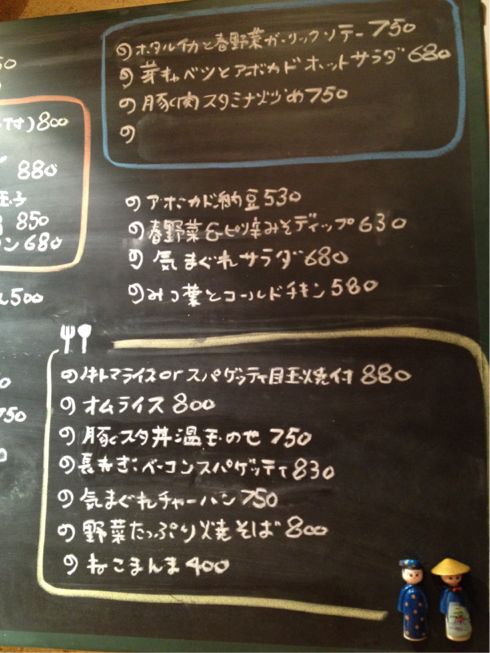 ホタルイカと春野菜ガーリックソテー750
芽キャベツとアボカドホットサラダ680
豚肉スタミナ炒め750
付)800
880
玉子
850
ン680
500
アボカド納豆530
春野菜&ピリ辛みそディップ630
気まぐれサラダ680
みつ葉とコールドチキン580
牛トマライスorスパゲッティ目玉焼付880
オムライス800
豚スタ丼温玉のせ750
長ねぎベーコンスパゲッティ830
750
気まぐれチャーハン750
野菜たっぷり焼そば800
ねこまんま400